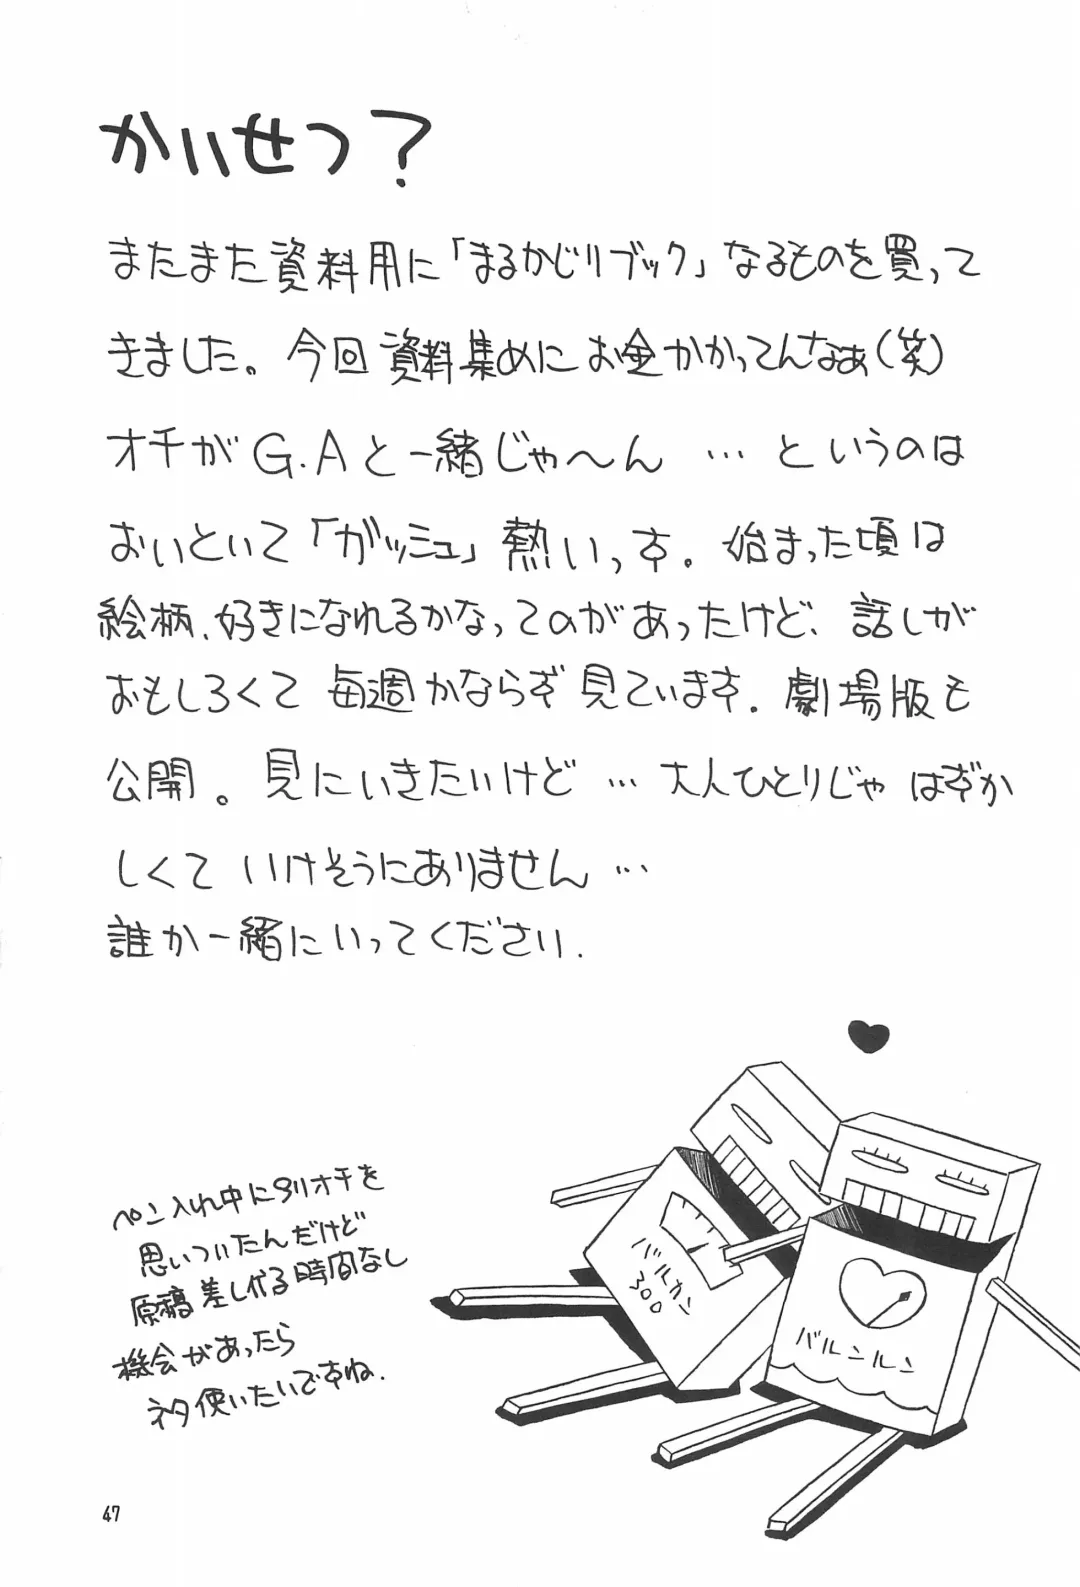 かいせつ？
またまた資料用に「まるかじりブック」なるものを買って
きました。今回資料集めにお金かかってんなぁ(笑)
オチがG.Aと一緒じゃ～ん…というのは
おいといて「ガッシュ」熱いっす.始まった頃は
絵柄、好きになれるかなってのがあったけど、話しが
おもしろくて毎週かならず見ています.劇場版も
公開。見にいきたいけど…大人ひとりじゃはずか
しくていけそうにありません…
誰か一緒にいってください.
ペン入れ中に別オチを
思いついたんだけど
原稿差しかえる時間なし
機会があったら
ネタ使いたいですね.
バルカン
300
バルンルン
47